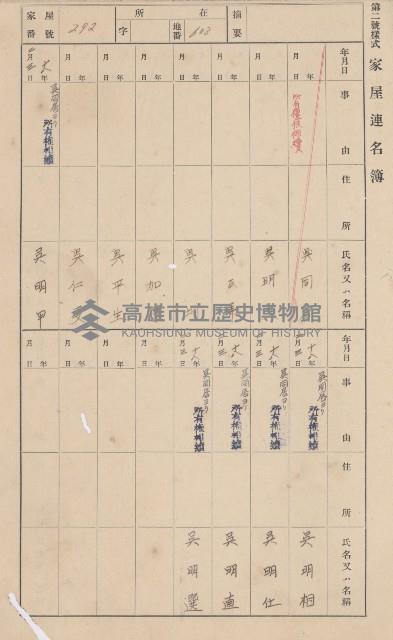 第二號樣式
家屋連名簿
摘要
所在
地番
103
字
家屋番號
292
年月日
事由
住所
氏名又ハ名稱
年月日
所有權保佃讓
吳同
年月日
吳明
年月日
吳
年月日
吳
年月日
吳加
年月日
吳平生
年月日
吳仁
十八年二月三日
吳同居ヨリ
所有權相續
吳明甲
年月日
事由
住所
氏名又ハ名稱
十八年月三日
吳同居ヨリ
所有權相續
吳明相
十八年月三日
吳同居ヨリ
所有權相續
吳明仕
十八年月三日
吳同居ヨリ
所有權相續
吳明直
十八年月三日
吳同居ヨリ
所有權相續
吳明選
年月日
年月日
年月日
年月日
高雄市立歷史博物館
KAOHSIUNG MUSEUM OF HISTORY